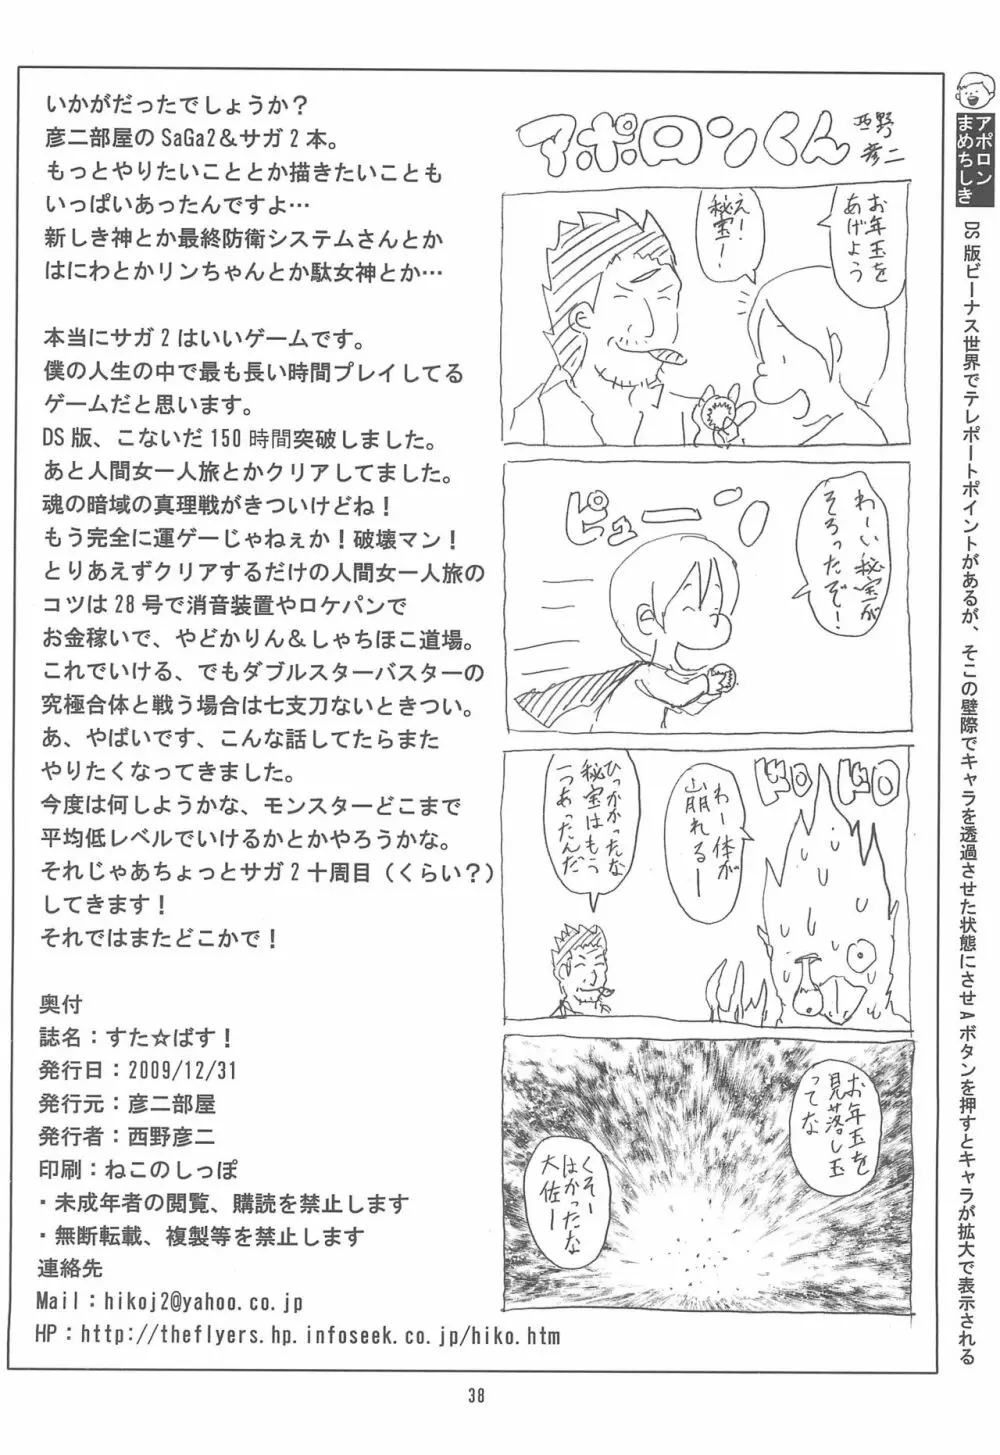 アポロン
まめちしき
DS版ビーナス世界でテレポートポイントがあるが、そこの壁際でキャラを透過させた状態にさせAボタンを押すとキャラが拡大で表示される
アポロンくん
西野
彦二
お年玉を
あげよう
え!
秘宝!
わーい秘宝が
そろったぞ!
ピューン
ドロドロ
わー体が
崩れるー
ひっかかったな
秘宝はもう
一つあったんだ
お年玉を
見落し玉
ってな
くそー
はかったな
大佐ー
いかがだったでしょうか?
彦二部屋のSaGa2&サガ2本。
もっとやりたいこととか描きたいことも
いっぱいあったんですよ…
新しき神とか最終防衛システムさんとか
はにわとかリンちゃんとか駄女神とか…
本当にサガ2はいいゲームです。
僕の人生の中で最も長い時間プレイしてる
ゲームだと思います。
DS版、こないだ150時間突破しました。
あと人間女一人旅とかクリアしてました。
魂の暗域の真理戦がきついけどね!
もう完全に運ゲーじゃねぇか!破壊マン!
とりあえずクリアするだけの人間女一人旅の
コツは28号で消音装置やロケパンで
お金稼いで、やどかりん&しゃちほこ道場。
これでいける、でもダブルスターバスターの
究極合体と戦う場合は七支刀ないときつい。
あ、やばいです、こんな話してたらまた
やりたくなってきました。
今度は何しようかな、モンスターどこまで
平均低レベルでいけるかとかやろうかな。
それじゃあちょっとサガ2十周目(くらい?)
してきます!
それではまたどこかで!
奥付
誌名:すた☆ばす!
発行日:2009/12/31
発行元:彦二部屋
発行者:西野彦二
印刷:ねこのしっぽ
・未成年者の閲覧、購読を禁止します
・無断転載、複製等を禁止します
連絡先
Mail:hikoj2@yahoo.co.jp
HP:http://theflyers.hp.infoseek.co.jp/hiko.htm
38